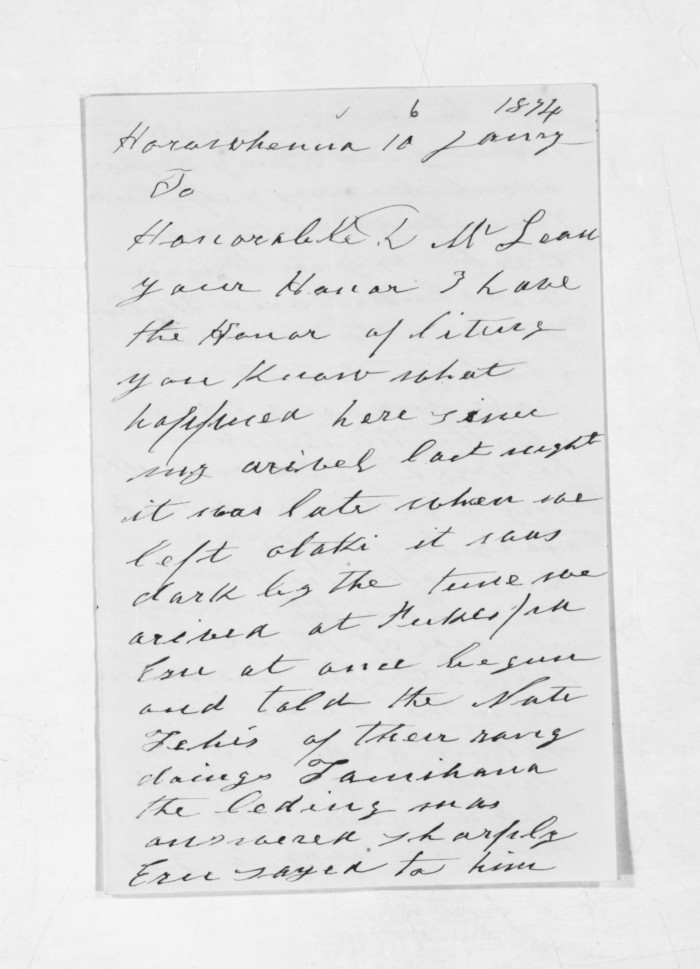 6 1874
Horowhenua 10 Janry
To
Honorable D McLean
your Honor I have
the Honor of liting
you Know what
happned here sinec
my arivel last night
it was late when we
left otaki it was
dark by the time we
arived at
Eru at once begun
and told the Nate
of their rong
doings Tamihana
the leding man
answered sharply
Eru sayed to him